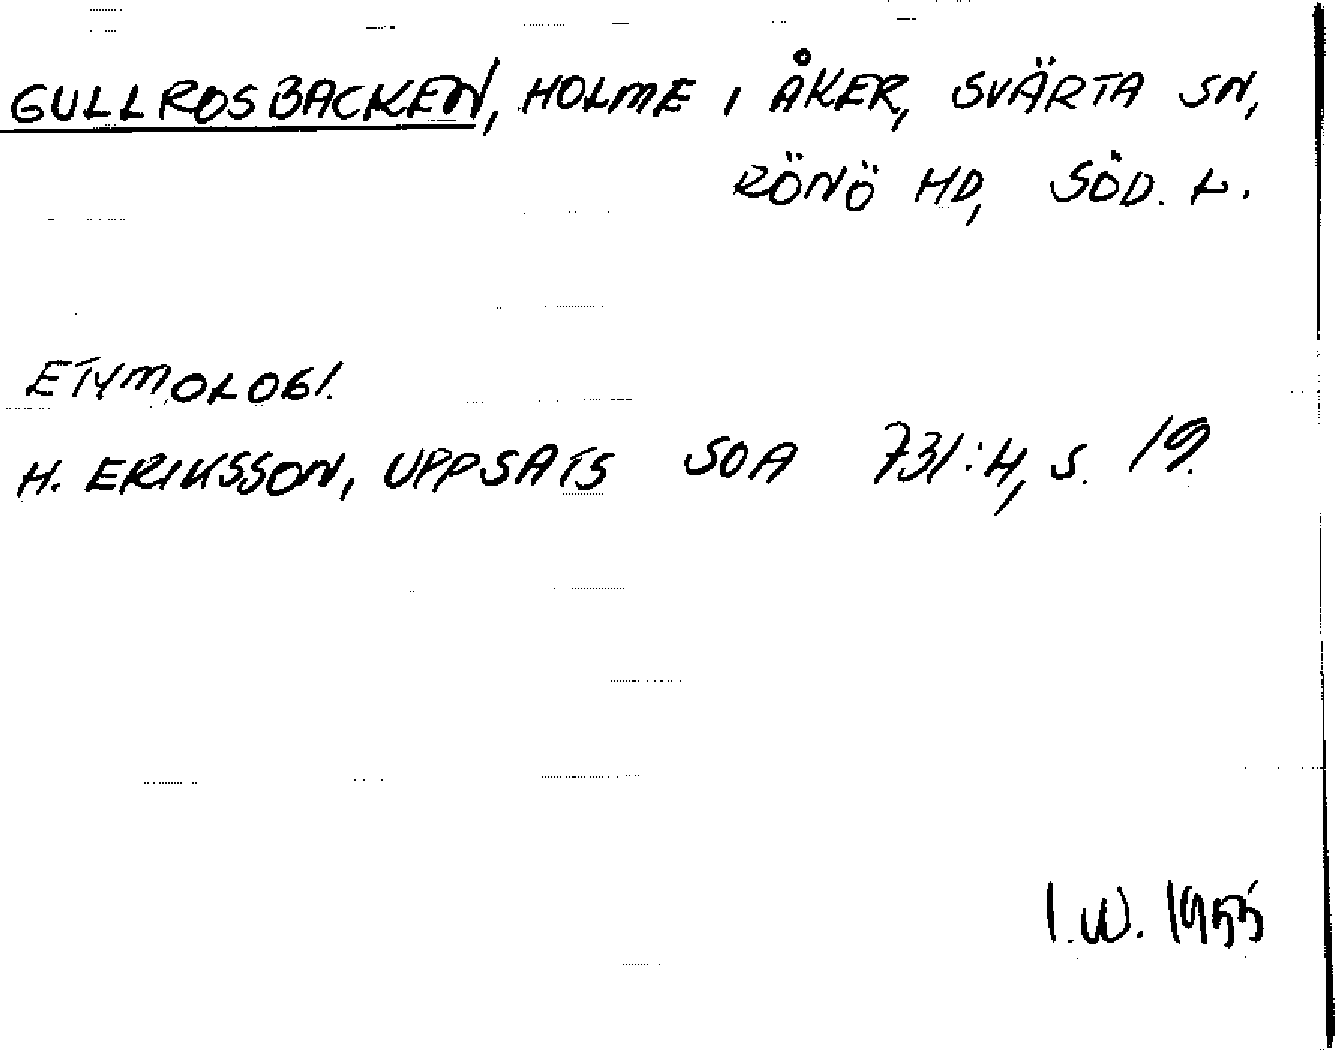 GULLROSBACKEN, HOLME I ÅKER, SVÄRTA SN,
RÖNÖ HD, SÖD. L.
ETYMOLOGI.
H. ERIKSSON, UPPSATS SOA 731:4, S. 19.
I.W. 1955